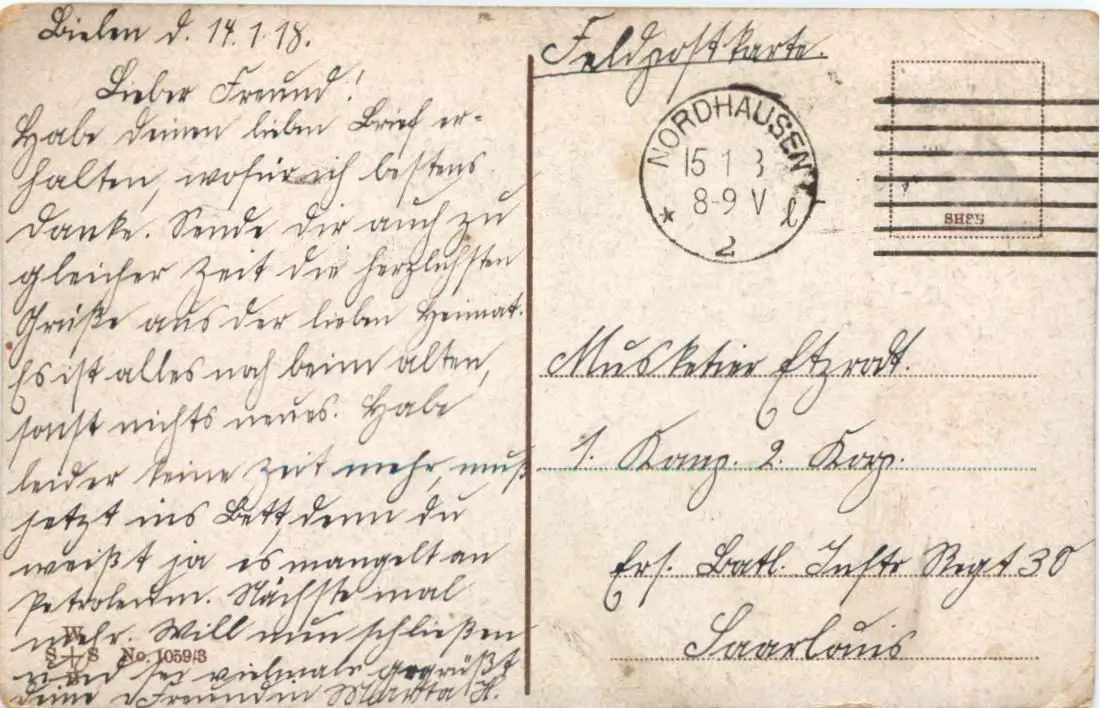 Bielen d. 14.1.18.
Lieber Freund!
Habe deinen lieben Brief er-
halten, wofür ich bestens
danke. Sende dir auch zu
gleicher Zeit die herzlichsten
Grüße aus der lieben Heimat.
Es ist alles noch beim alten,
sonst nichts neues. Habe
leider keine Zeit mehr, muß
jetzt ins Bett, denn du
weißt ja es mangelt an
Petroleum. Nächste mal
mehr. Will nun schließen
und sei vielmals gegrüßt
deine Freundin Martha H.
W
S S
B
No. 1059/3
Feldpostkarte.
NORDHAUSEN
15 1 8
8-9 V
* 2 l
Musketier Etzrodt.
1. Komp. 2. Korp.
Ers. Batl. Inftr Regt 30
Saarlouis